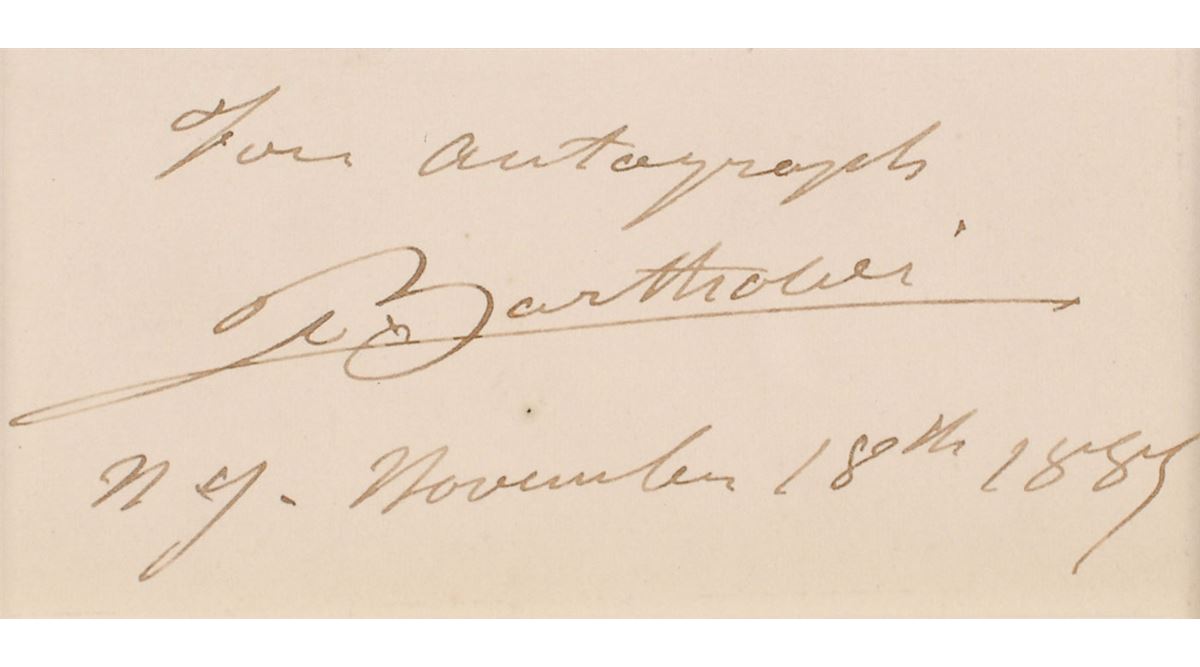 For autograph
Bartholdi
N Y. November 18th 1885